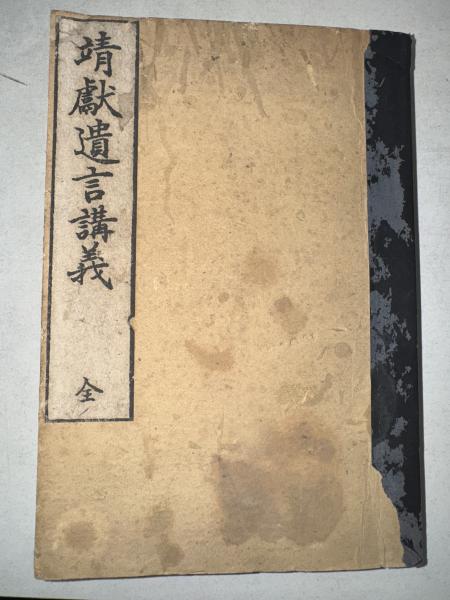 靖獻遺言講義
全